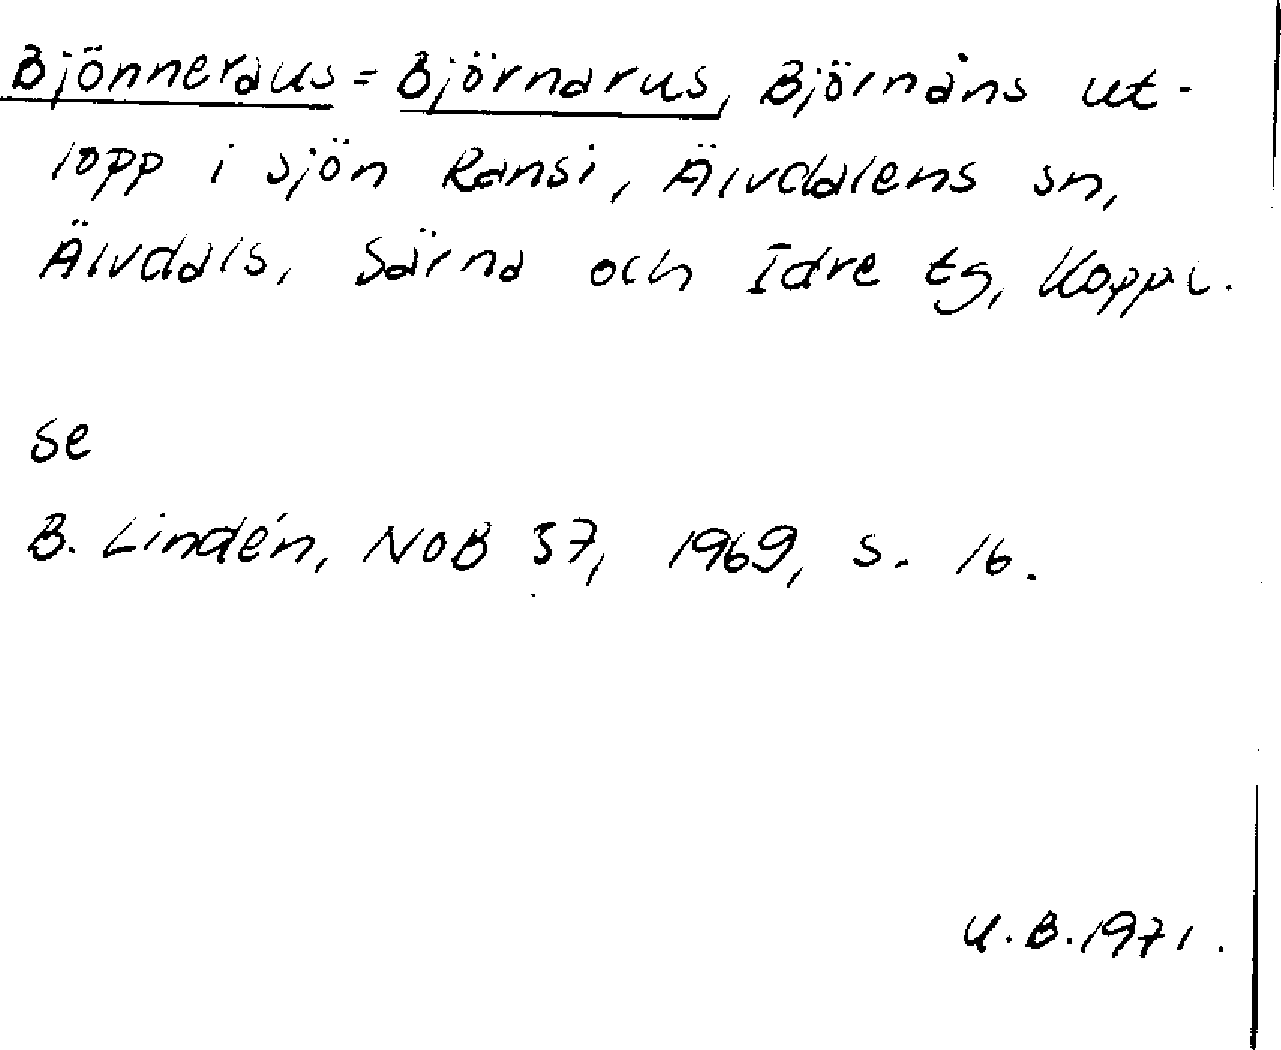 Bjönneraus = Björnarus, Björnåns ut-
lopp i sjön Ransi, Älvdalens sn,
Älvdals, Särna och Idre tg, Koppl.
se
B. Lindén, NoB 57, 1969, s. 16.
U.B. 1971.